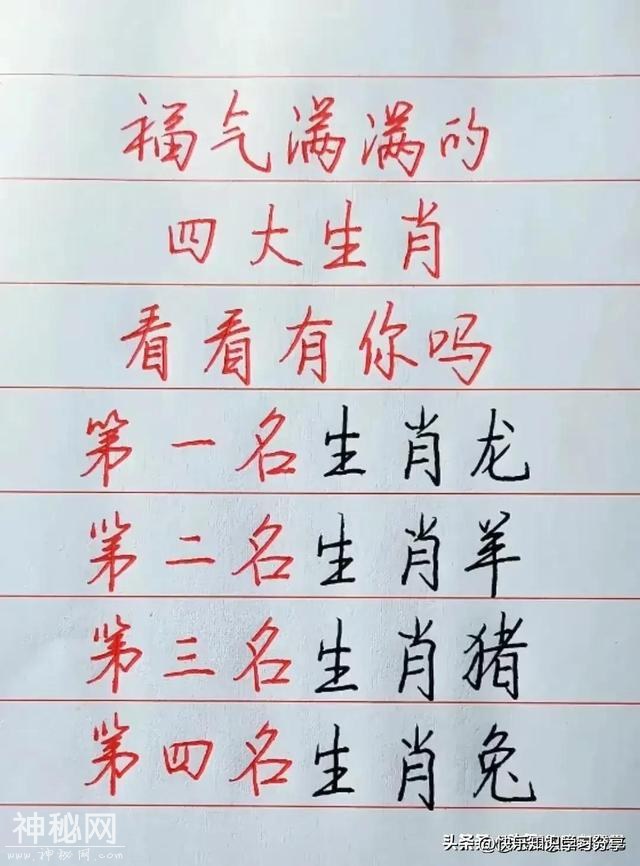 福气满满的
四大生肖
看看有你吗
第一名生肖龙
第二名生肖羊
第三名生肖猪
第四名生肖兔
神秘网
www.shenmw.com
头条@快乐知识学习分享